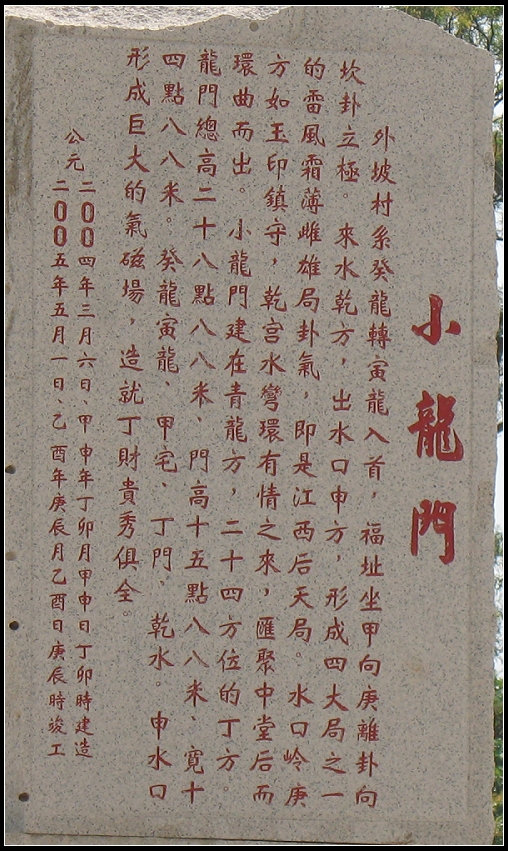 小龍門
外坡村系癸龍轉寅龍入首，福址坐甲向庚離卦向
坎卦立極。來水乾方，出水口申方，形成四大局之一
的雷風霜薄雌雄局卦氣，即是江西后天局。水口岭庚
方如玉印鎮守，乾宮水彎環有情之來，匯聚中堂后而
環曲而出。小龍門建在青龍方，二十四方位的丁方。
龍門總高二十八點八八米、門高十五點八八米、寬十
四點八八米。癸龍寅龍、甲宅、丁門、乾水。申水口
形成巨大的氣磁場，造就丁財貴秀俱全。
公元二00四年三月六日、甲申年丁卯月甲申日丁卯時建造
二00五年五月一日、乙酉年庚辰月乙酉日庚辰時竣工